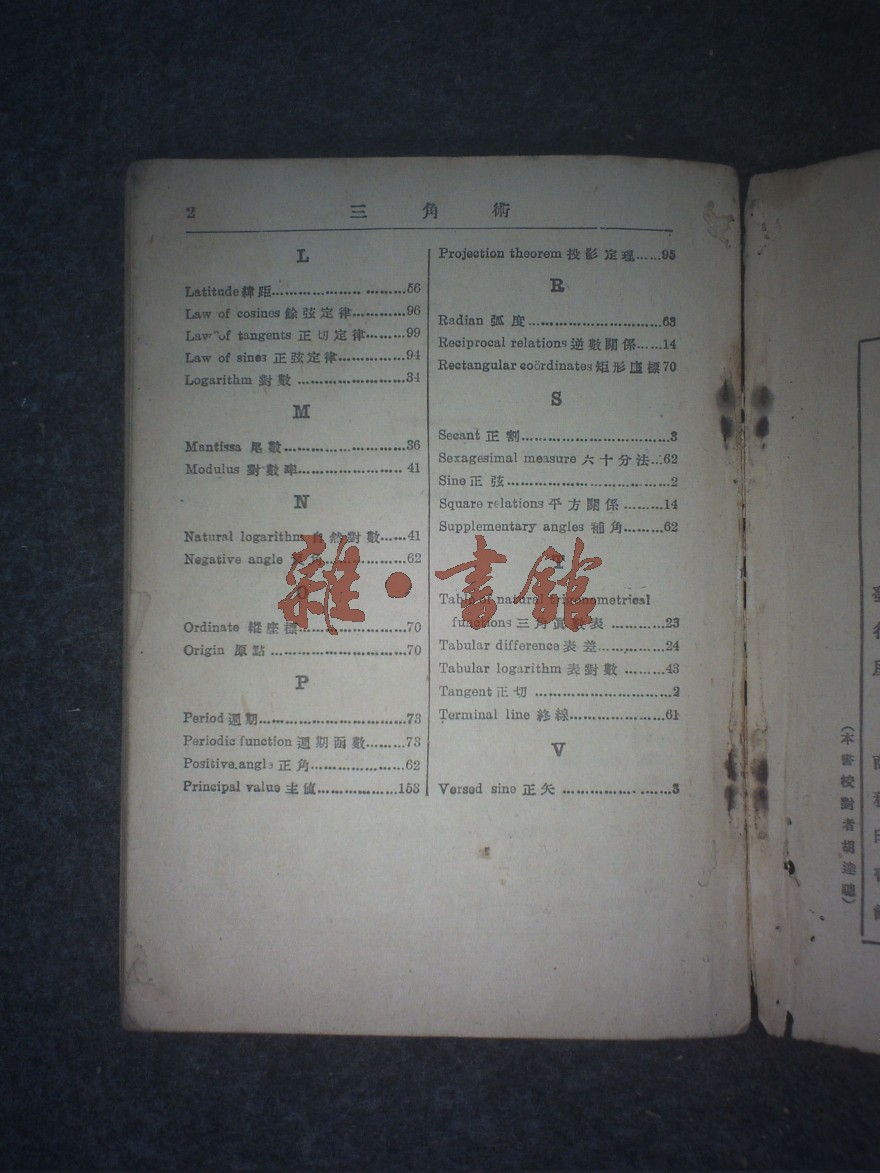 2 三角術
L
Latitude 緯距........................56
Law of cosines 餘弦定律.........96
Law of tangents 正切定律......99
Law of sines 正弦定律............94
Logarithm 對數 ..................34
M
Mantissa 尾數.....................36
Modulus 對數率.................. 41
N
Natural logarithm 自然對數.....41
Negative angle 負角...............62
O
Ordinate 縱座標..................70
Origin 原點 .....................70
P
Period 週期........................73
Periodic function 週期函數.........73
Positive angle 正角...............62
Principal value 主值...............153
Projection theorem 投影定理......95
R
Radian 弧度.....................63
Reciprocal relations 逆數關係......14
Rectangular coördinates 矩形座標 70
S
Secant 正割........................3
Sexagesimal measure 六十分法...62
Sine 正弦...........................2
Square relations 平方關係 .........14
Supplementary angles 補角.........62
T
Table of natural trigonometrical
functions 三角函數表 ............23
Tabular difference 表差............24
Tabular logarithm 表對數 .........43
Tangent 正切 .....................2
Terminal line 終線..................61
V
Versed sine 正矢 ..................3
雜·書館
(本書校對者胡達聰)